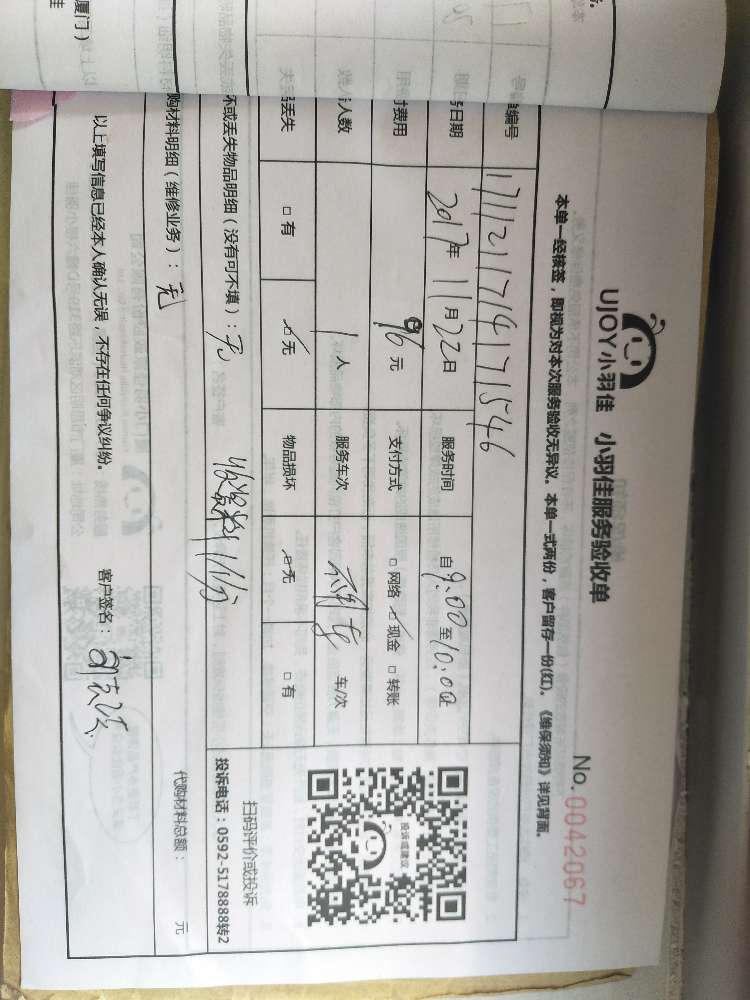 UJOY小羽佳 小羽佳服务验收单
No. 0042067
本单一经核签，即视为对本次服务验收无异议。本单一式两份，客户留存一份(红)。《维保须知》详见背面。
编号 171121171417546
日期 2017年11月22日 服务时间 自9:00至10:00止
费用 96元 支付方式 □网络 ☑现金 □转账
人数 1人 服务车次 车/次
丢失 □有 ☑无 物品损坏 ☑无 □有
坏或丢失物品明细（没有可不填）：无
投诉或建议
扫码评价或投诉
投诉电话：0592-5178888转2
购材料明细（维修业务）：无
代购材料总额： 元
以上填写信息已经本人确认无误，不存在任何争议纠纷。 客户签名：
厦门）
佳